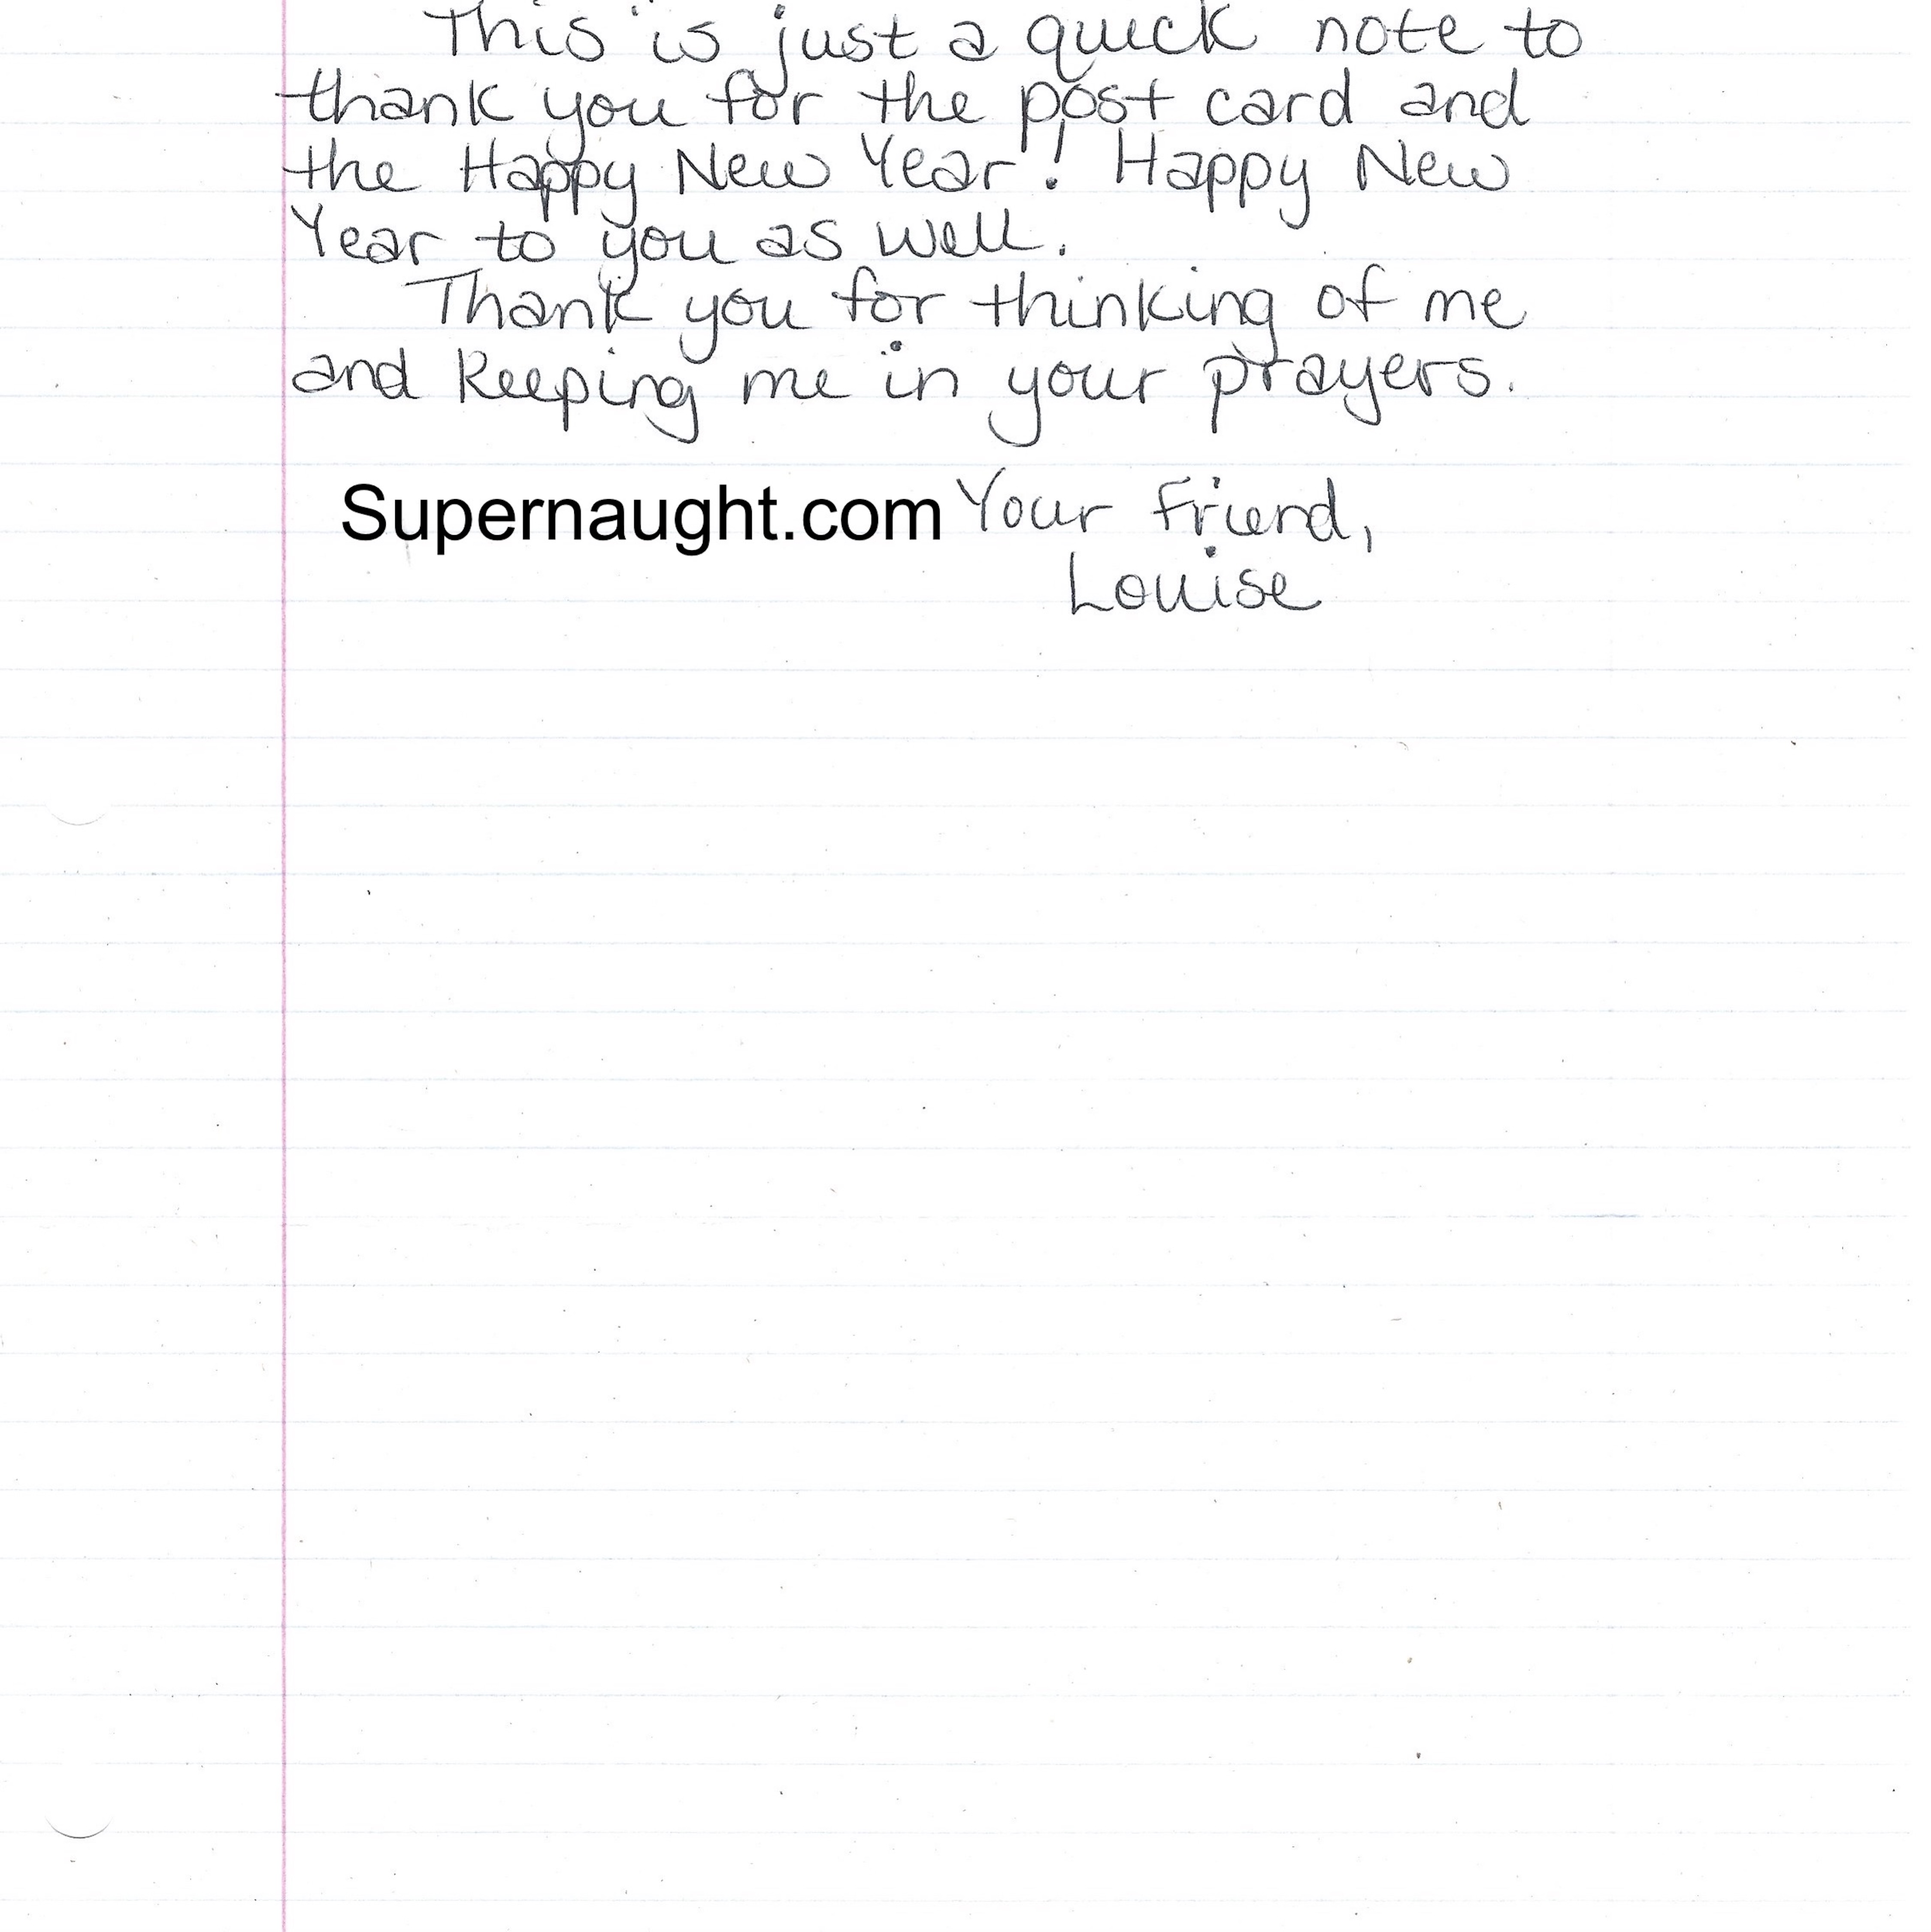 This is just a quick note to
thank you for the post card and
the Happy New Year! Happy New
Year to you as well.
Thank you for thinking of me
and keeping me in your prayers.
Supernaught.com Your friend,
Louise